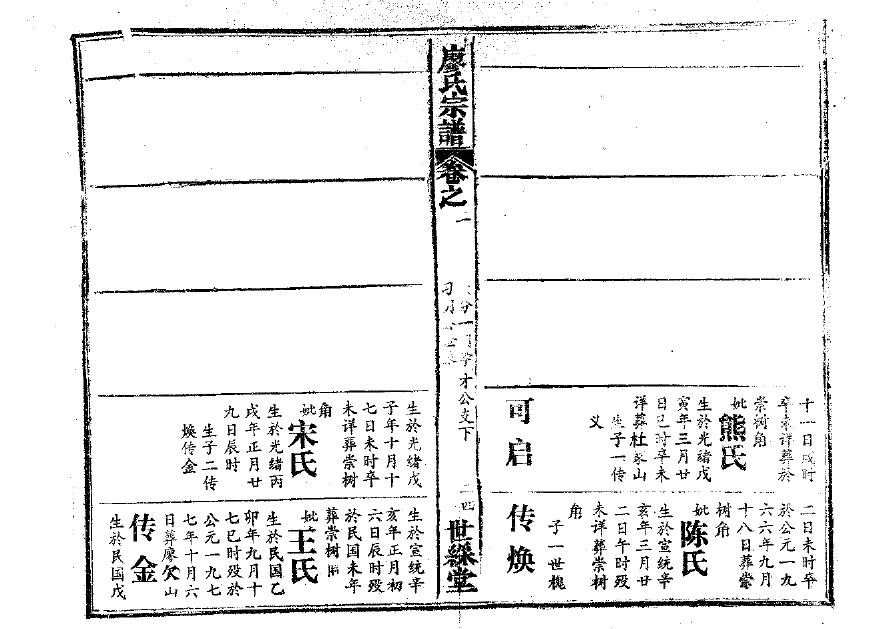 十一日戌时
卒未详葬於
崇树角
妣熊氏
生於光绪戊
寅年三月廿
日巳时卒未
详葬杜家山
生子一传
义
可启
二日未时卒
於公元一九
六六年九月
十八日葬崇
树角
妣陈氏
生於宣统辛
亥年三月廿
二日午时殁
未详葬崇树
角
子一世槐
传焕
廖氏宗譜
卷之一
才公支下
世綵堂
生於光绪戊
子年十月十
七日未时卒
未详葬崇树
角
妣宋氏
生於光绪丙
戌年正月廿
九日辰时
生子二传
焕传金
生於宣统辛
亥年正月初
六日辰时殁
於民国未年
葬崇树
妣王氏
生於民国乙
卯年九月十
七巳时殁於
公元一九七
七年十月六
日葬廖欠山
传金
生於民国戊